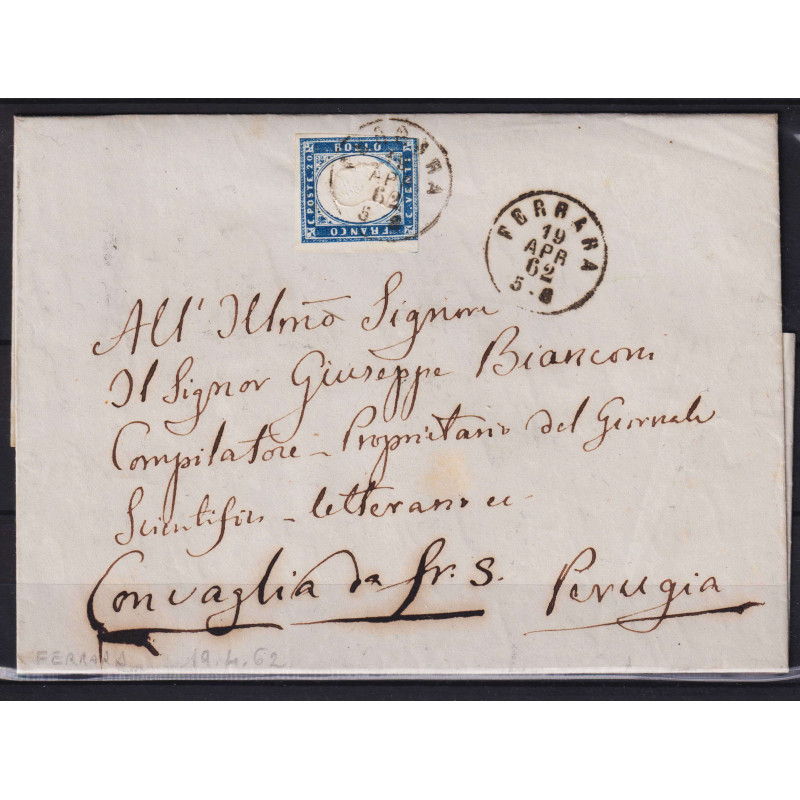 FRANCO
BOLLO
C. POSTE 20
C. VENTI
FERRARA
19
APR
62
5 - 8
APR
62
5
All' Illmõ Signore
Il Signor Giuseppe Bianconi
Compilatore - Proprietario del Giornale
Scientifico - letterario ec
Con vaglia da fr. 3.
Perugia
FERRARA 19.4.62